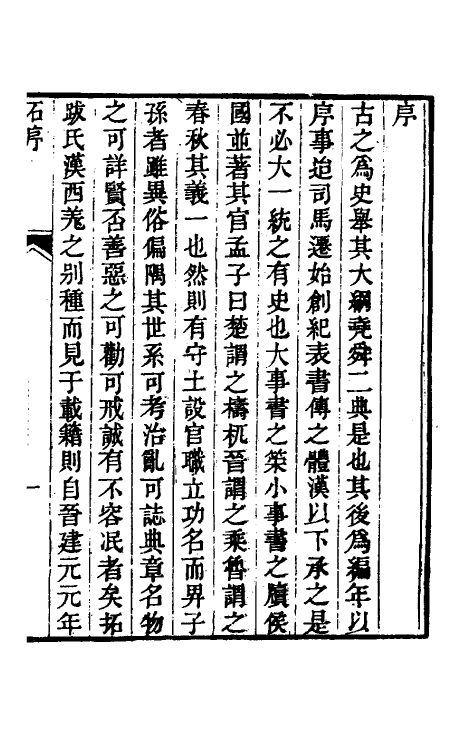 序
古之爲史舉其大綱堯舜二典是也其後爲編年以
序事迨司馬遷始創紀表書傳之體漢以下承之是
不必大一統之有史也大事書之策小事書之牘侯
國並著其官孟子曰楚謂之檮杌晉謂之乘魯謂之
春秋其義一也然則有守土設官職立功名而畀子
孫者雖異俗偏隅其世系可考治亂可誌典章名物
之可詳賢否善惡之可勸可戒誠有不容泯者矣拓
跋氏漢西羗之别種而見于載籍則自晉建元元年
石序
一